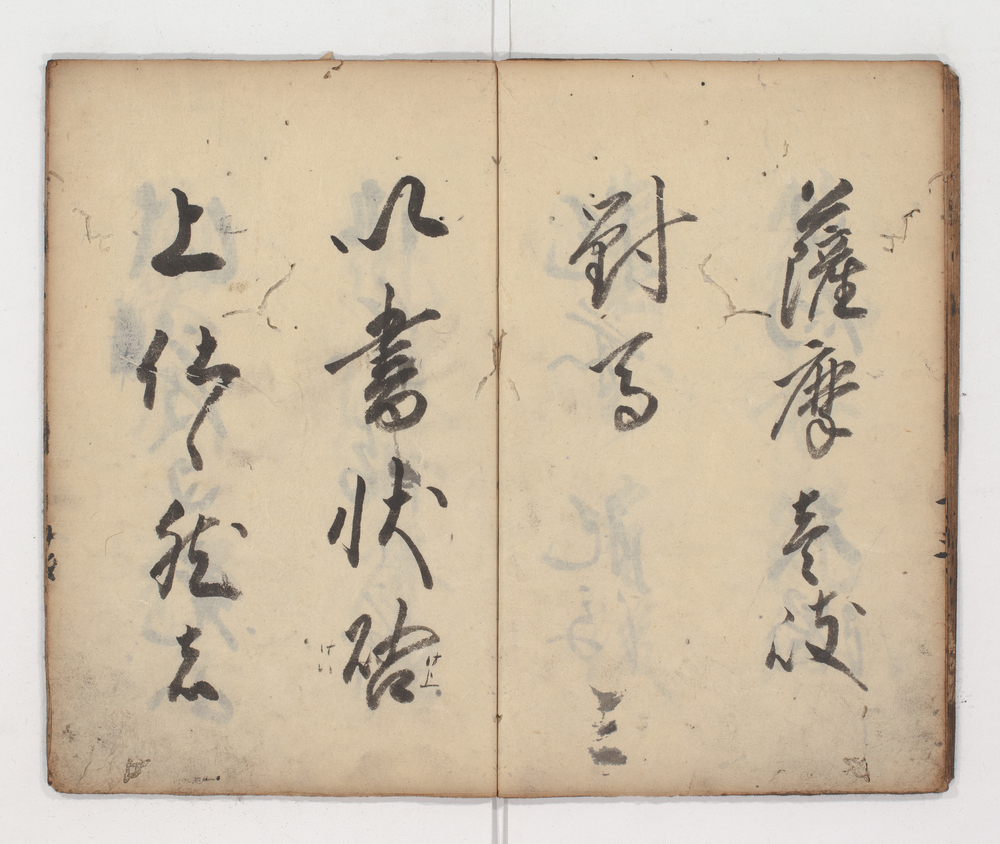 薩摩 壱岐
對馬
以書状啓
上仕候然者